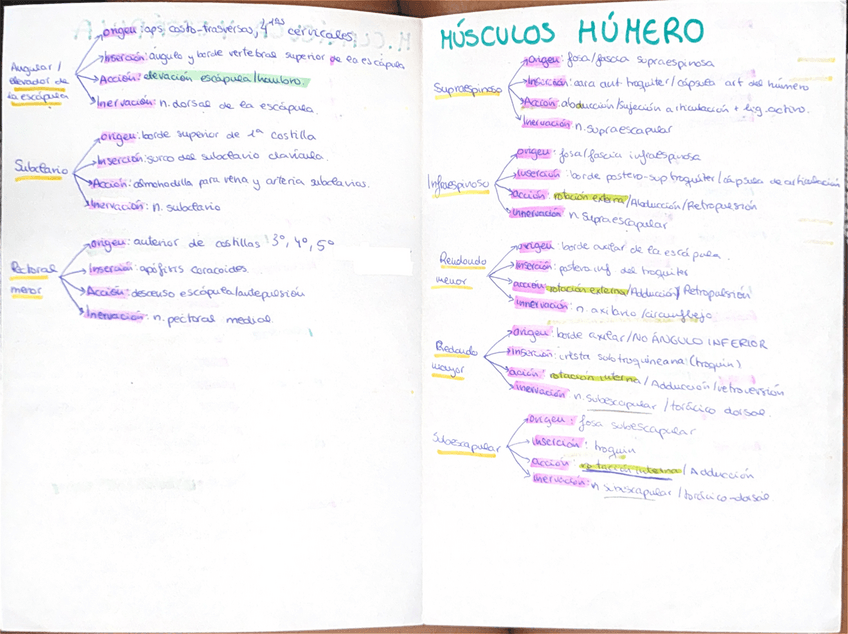 Angular/
elevador de
la escápula
origen: aps. costo-trasversas, 4 1ªˢ cervicales.
Inserción: ángulo y borde vertebral superior de la escápula
Acción: elevación escápula/hombro.
Inervación: n. dorsal de la escápula.
Subclavio
origen: borde superior de 1ª costilla
Inserción: surco del subclavio clavícula.
Acción: almohadilla para vena y arteria subclavias.
Inervación: n. subclavio
Pectoral
menor
origen: anterior de costillas 3º, 4º, 5º
Inserción: apófisis coracoides.
Acción: descenso escápula/antepulsión
Inervación: n. pectoral medial.
MÚSCULOS HÚMERO
Supraespinoso
origen: fosa/fascia supraespinosa
Inserción: cara ant. troquiter/cápsula art del húmero
Acción: abducción/sujeción articulación + lig. activo.
Inervación n. supraescapular
Infraespinoso
origen: fosa/fascia infraespinosa
Inserción: borde postero-sup troquiter/cápsula de articulación
acción: rotación externa/Abducción/Retropulsión
Innervación n. supraescapular
Reudondo
menor
origen: borde axilar de la escápula.
Inserción: postero inf. del troquiter
acción: rotación externa/Adducción/Retropulsión
innervación: n. axilar/circunflejo
Redondo
mayor
origen: borde axilar/NO ÁNGULO INFERIOR
Inserción: cresta subtroquineana (troquín)
acción: rotación interna/Adducción/retroversión
inervación n. subescapular/torácico dorsal.
Subescapular
origen: fosa subescapular
inserción: troquin
Acción: rotacción interna/Adducción
Inervación: n subescapular/torácico-dorsal